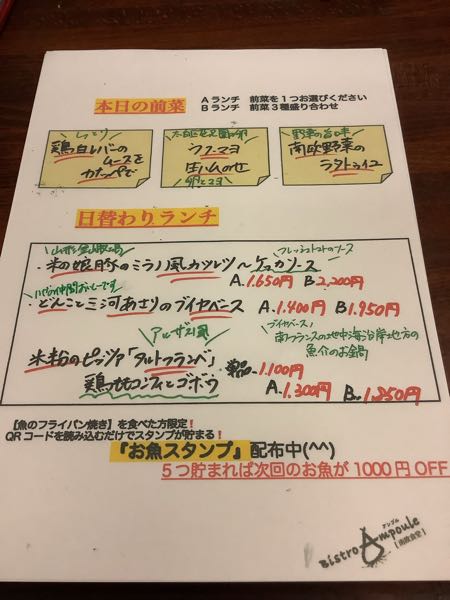 本日の前菜
Aランチ 前菜を1つお選びください
Bランチ 前菜3種盛り合わせ
しっとり
鶏白レバーの
ムースを
カナッペで
ウフ・マヨ
生ハムのせ
卵とマヨ
野菜の旨味
南欧野菜の
ラタトゥイユ
日替わりランチ
・米の娘豚のミラノ風カツレツ〜ケッカソース
フレッシュトマトのソース
A.1.650円 B.2.200円
・どんこと三河あさりのブイヤベース
A.1.400円 B.1.950円
ブイヤベース
南フランスの地中海沿岸地方の
魚介のお鍋
アルザス風
米粉のピッツァ「タルトフランベ」
単品.1.100円
鶏ももコンフィとゴボウ
A.1.300円 B.1.850円
【魚のフライパン焼き】を食べた方限定！
QRコードを読み込むだけでスタンプが貯まる！
『お魚スタンプ』配布中(^^)
5つ貯まれば次回のお魚が1000円OFF
アンプル
Bistro Ampoule